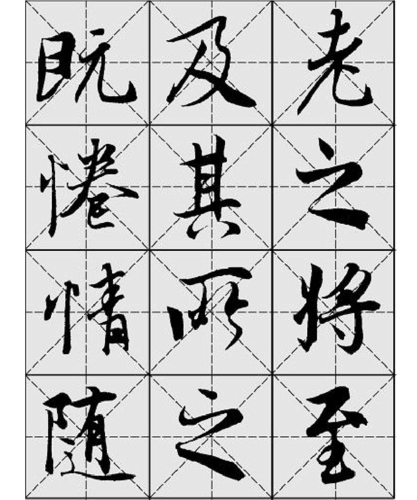 老之将至
及其所之
既惓情随